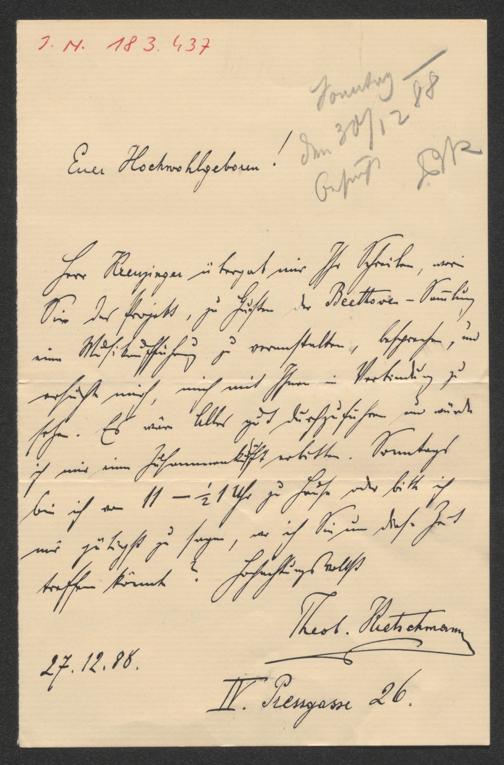 I. N. 183.437
Sonntag
den 30/12 88
Euer Hochwohlgeboren!
Herr übergab mir Ihr Schreiben, worin
Sie das Projekt, zu Gunsten der Beethoven-Sammlung
eine Musikaufführung zu veranstalten, besprechen, und
ersucht mich, mich mit Ihnen in Verbindung zu
setzen. Es wäre Alles gut durchzuführen und würde
ich mir eine Zusammenkunft erbitten. Sonntags
bin ich von 11 – ½ 1 Uhr zu Hause oder bitte ich
mir gütigst zu sagen, wo ich Sie um diese Zeit
treffen könnte? Hochachtungsvollst
Theob. Kretschmann
27.12.88.
IV. Pressgasse 26.